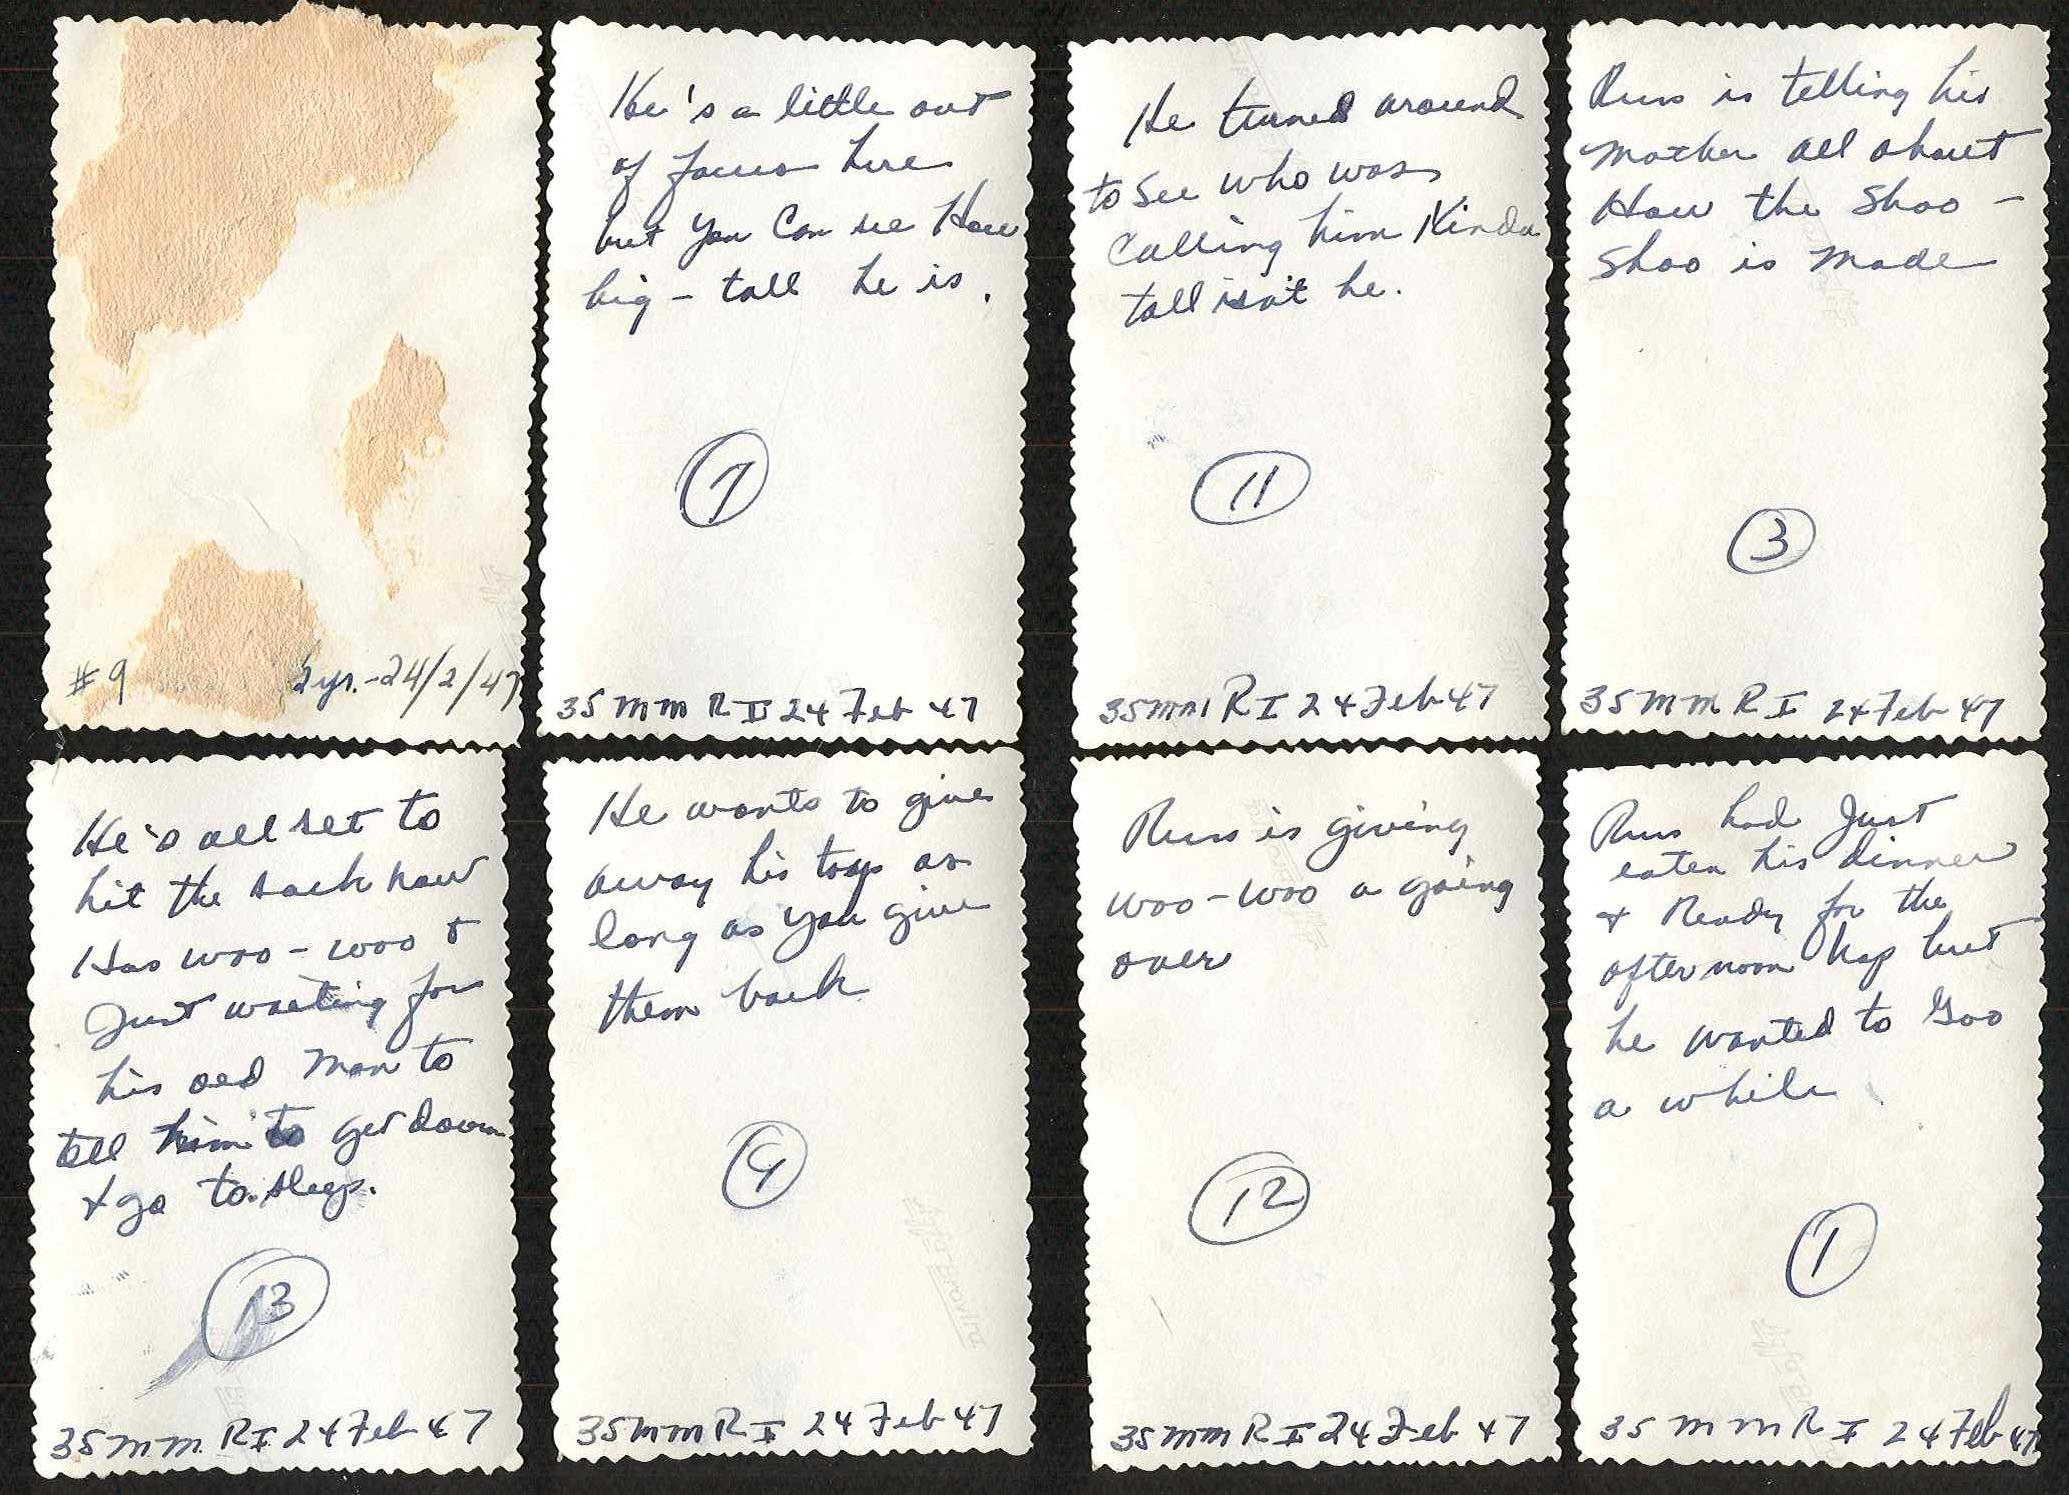 #9 2 yr. - 24/2/47
He's a little out
of focus here
but you can see How
big - tall he is.
7
35 mm R II 24 Feb 47
He turned around
to see who was
calling him Kinda
tall isn't he.
11
35 mm R I 24 Feb 47
Russ is telling his
mother all about
How the Shoo -
Shoo is made
3
35 mm R I 24 Feb 47
He's all set to
hit the sack now
Has woo-woo &
Just waiting for
his old man to
tell him to get down
& go to sleep.
13
35 mm R I 24 Feb 47
He wants to give
away his toys as
long as you give
them back
9
35 mm R I 24 Feb 47
Russ is giving
woo-woo a going
over
12
35 mm R I 24 Feb 47
Russ had Just
eaten his dinner
& Ready for the
afternoon nap but
he wanted to Goo
a while
1
35 mm R I 24 Feb 47